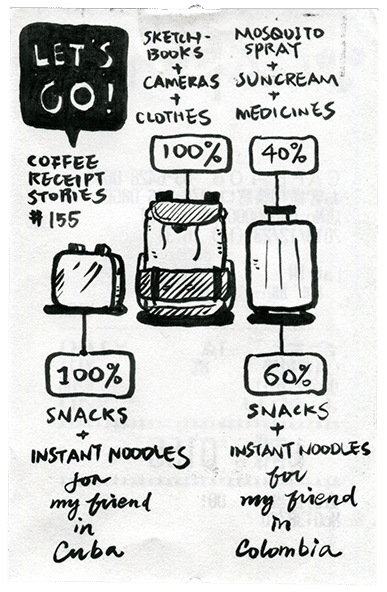 LET'S
GO!
COFFEE
RECEIPT
STORIES
#155
SKETCH-
BOOKS
+
CAMERAS
+
CLOTHES
100%
MOSQUITO
SPRAY
+
SUNCREAM
+
MEDICINES
40%
100%
SNACKS
+
INSTANT NOODLES
for
my friend
in
Cuba
60%
SNACKS
+
INSTANT NOODLES
for
my friend
in
Colombia